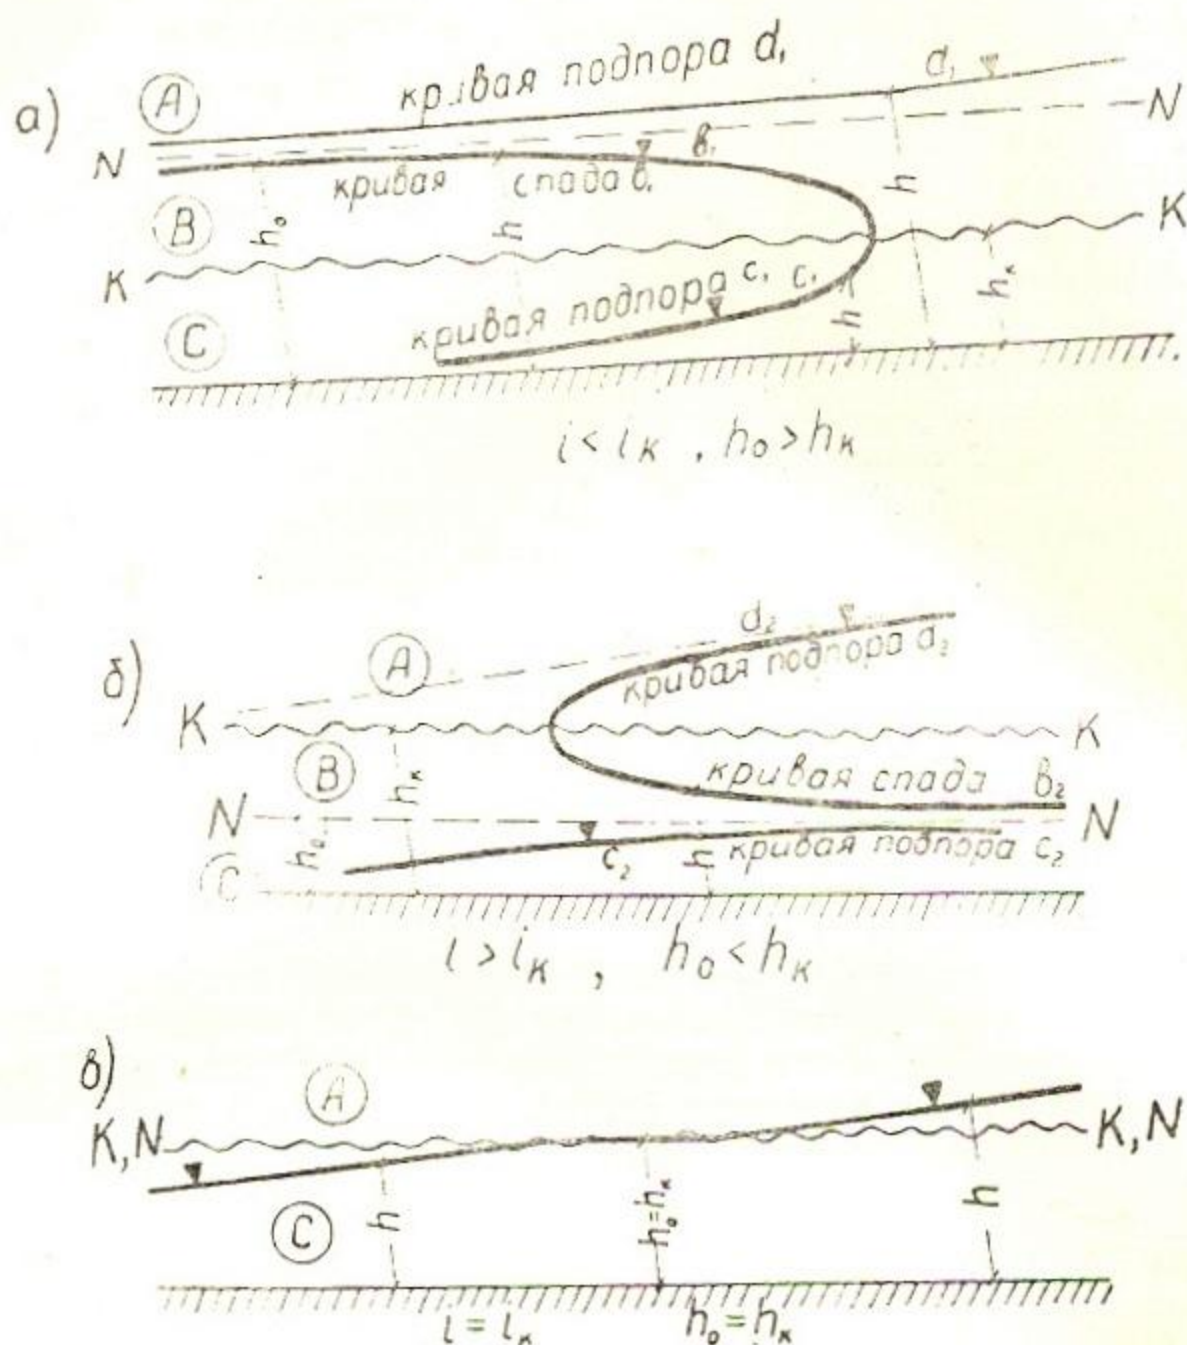 а)
A
кривая подпора d₁
d₁
N
N
в₁
кривая спада в₁
B
h₀
h
h
K
K
C
кривая подпора c₁ c₁
h
hк
i < iк , h₀ > hк
б)
A
d₂
кривая подпора d₂
K
K
B
hк
кривая спада в₂
N
N
h₀
c₂
h
кривая подпора c₂
C
i > iк , h₀ < hк
в)
A
K, N
K, N
C
h
h₀ = hк
h
i = iк h₀ = hк